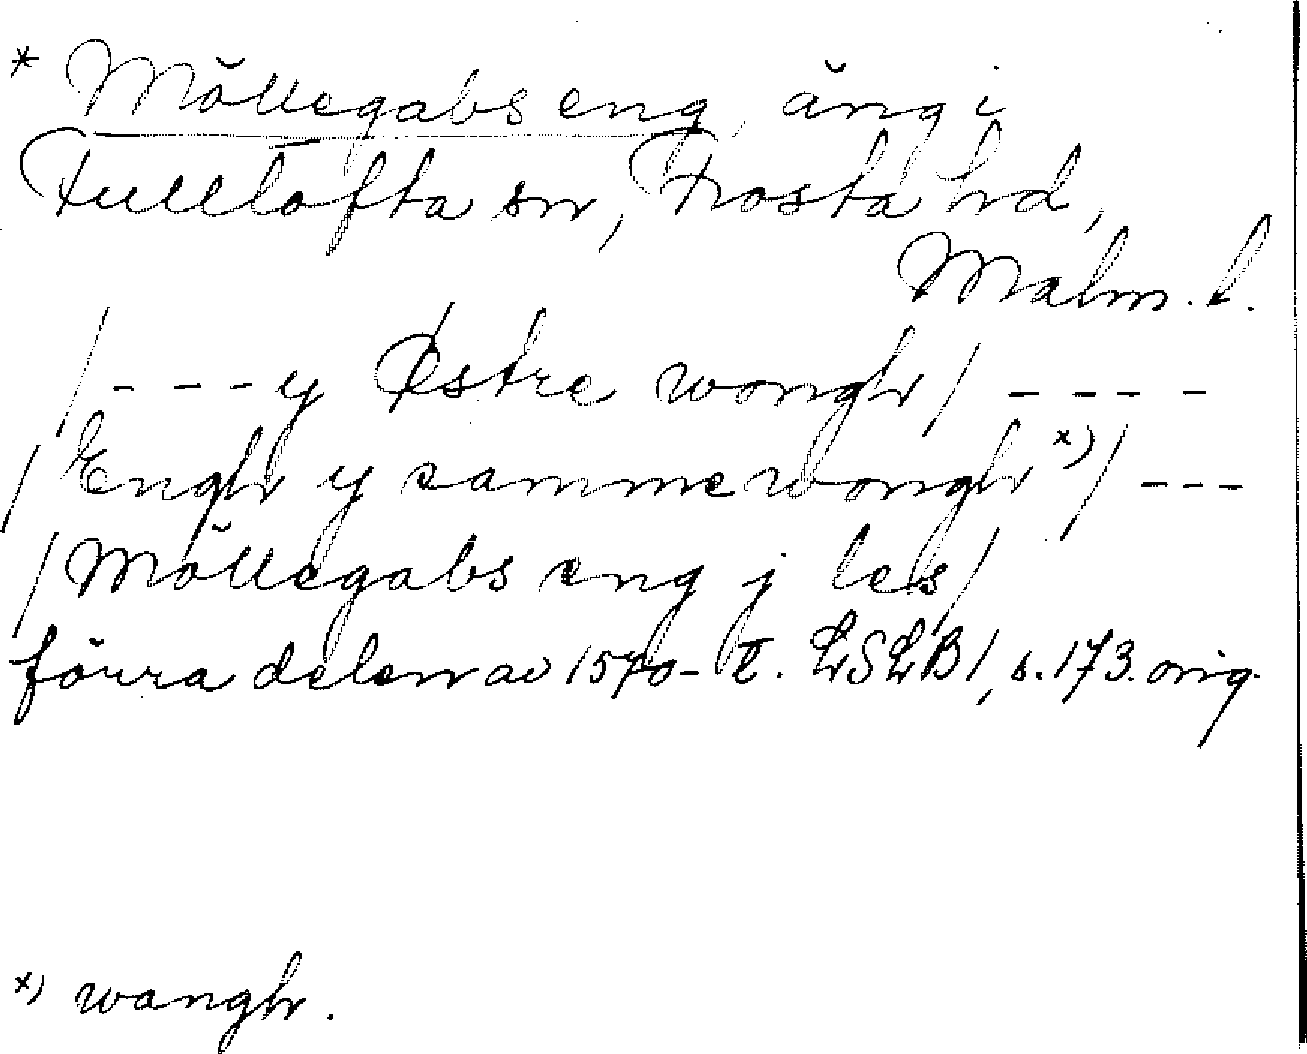 * Möllegabs eng, äng i
Fulltofta sn, Frosta hd,
Malm. l.
/ - - - y Østre wongh / - - - -
/ Engh y samme wongh x) / - - -
/ Möllegabs eng j les /
förra delen av 1570-t. LSLB 1, s. 173. orig.
x) wangh.